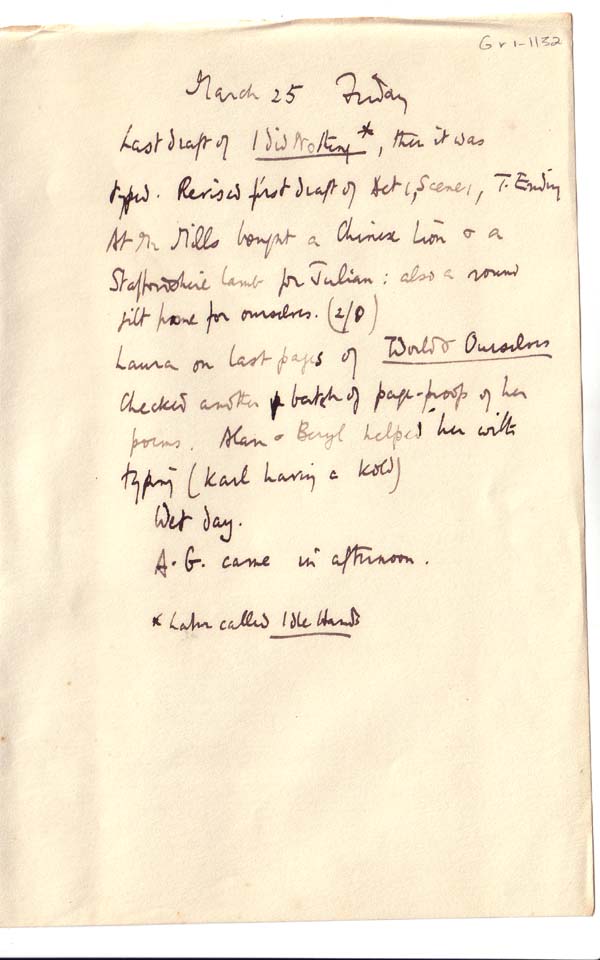 Gr 1-1132
March 25 Friday
Last draft of I did Nothing*, then it was
typed. Revised first draft of Act 1, Scene 1, T. Ending
At Mr Mills bought a Chinese Lion & a
Staffordshire lamb for Julian: also a round
gilt frame for ourselves. (2/8)
Laura on last pages of World & Ourselves
Checked another batch of page-proofs of her
poems. Alan & Beryl helped her with
typing (Karl having a kold)
Wet day.
A.G. came in afternoon.
* Later called Idle Hands